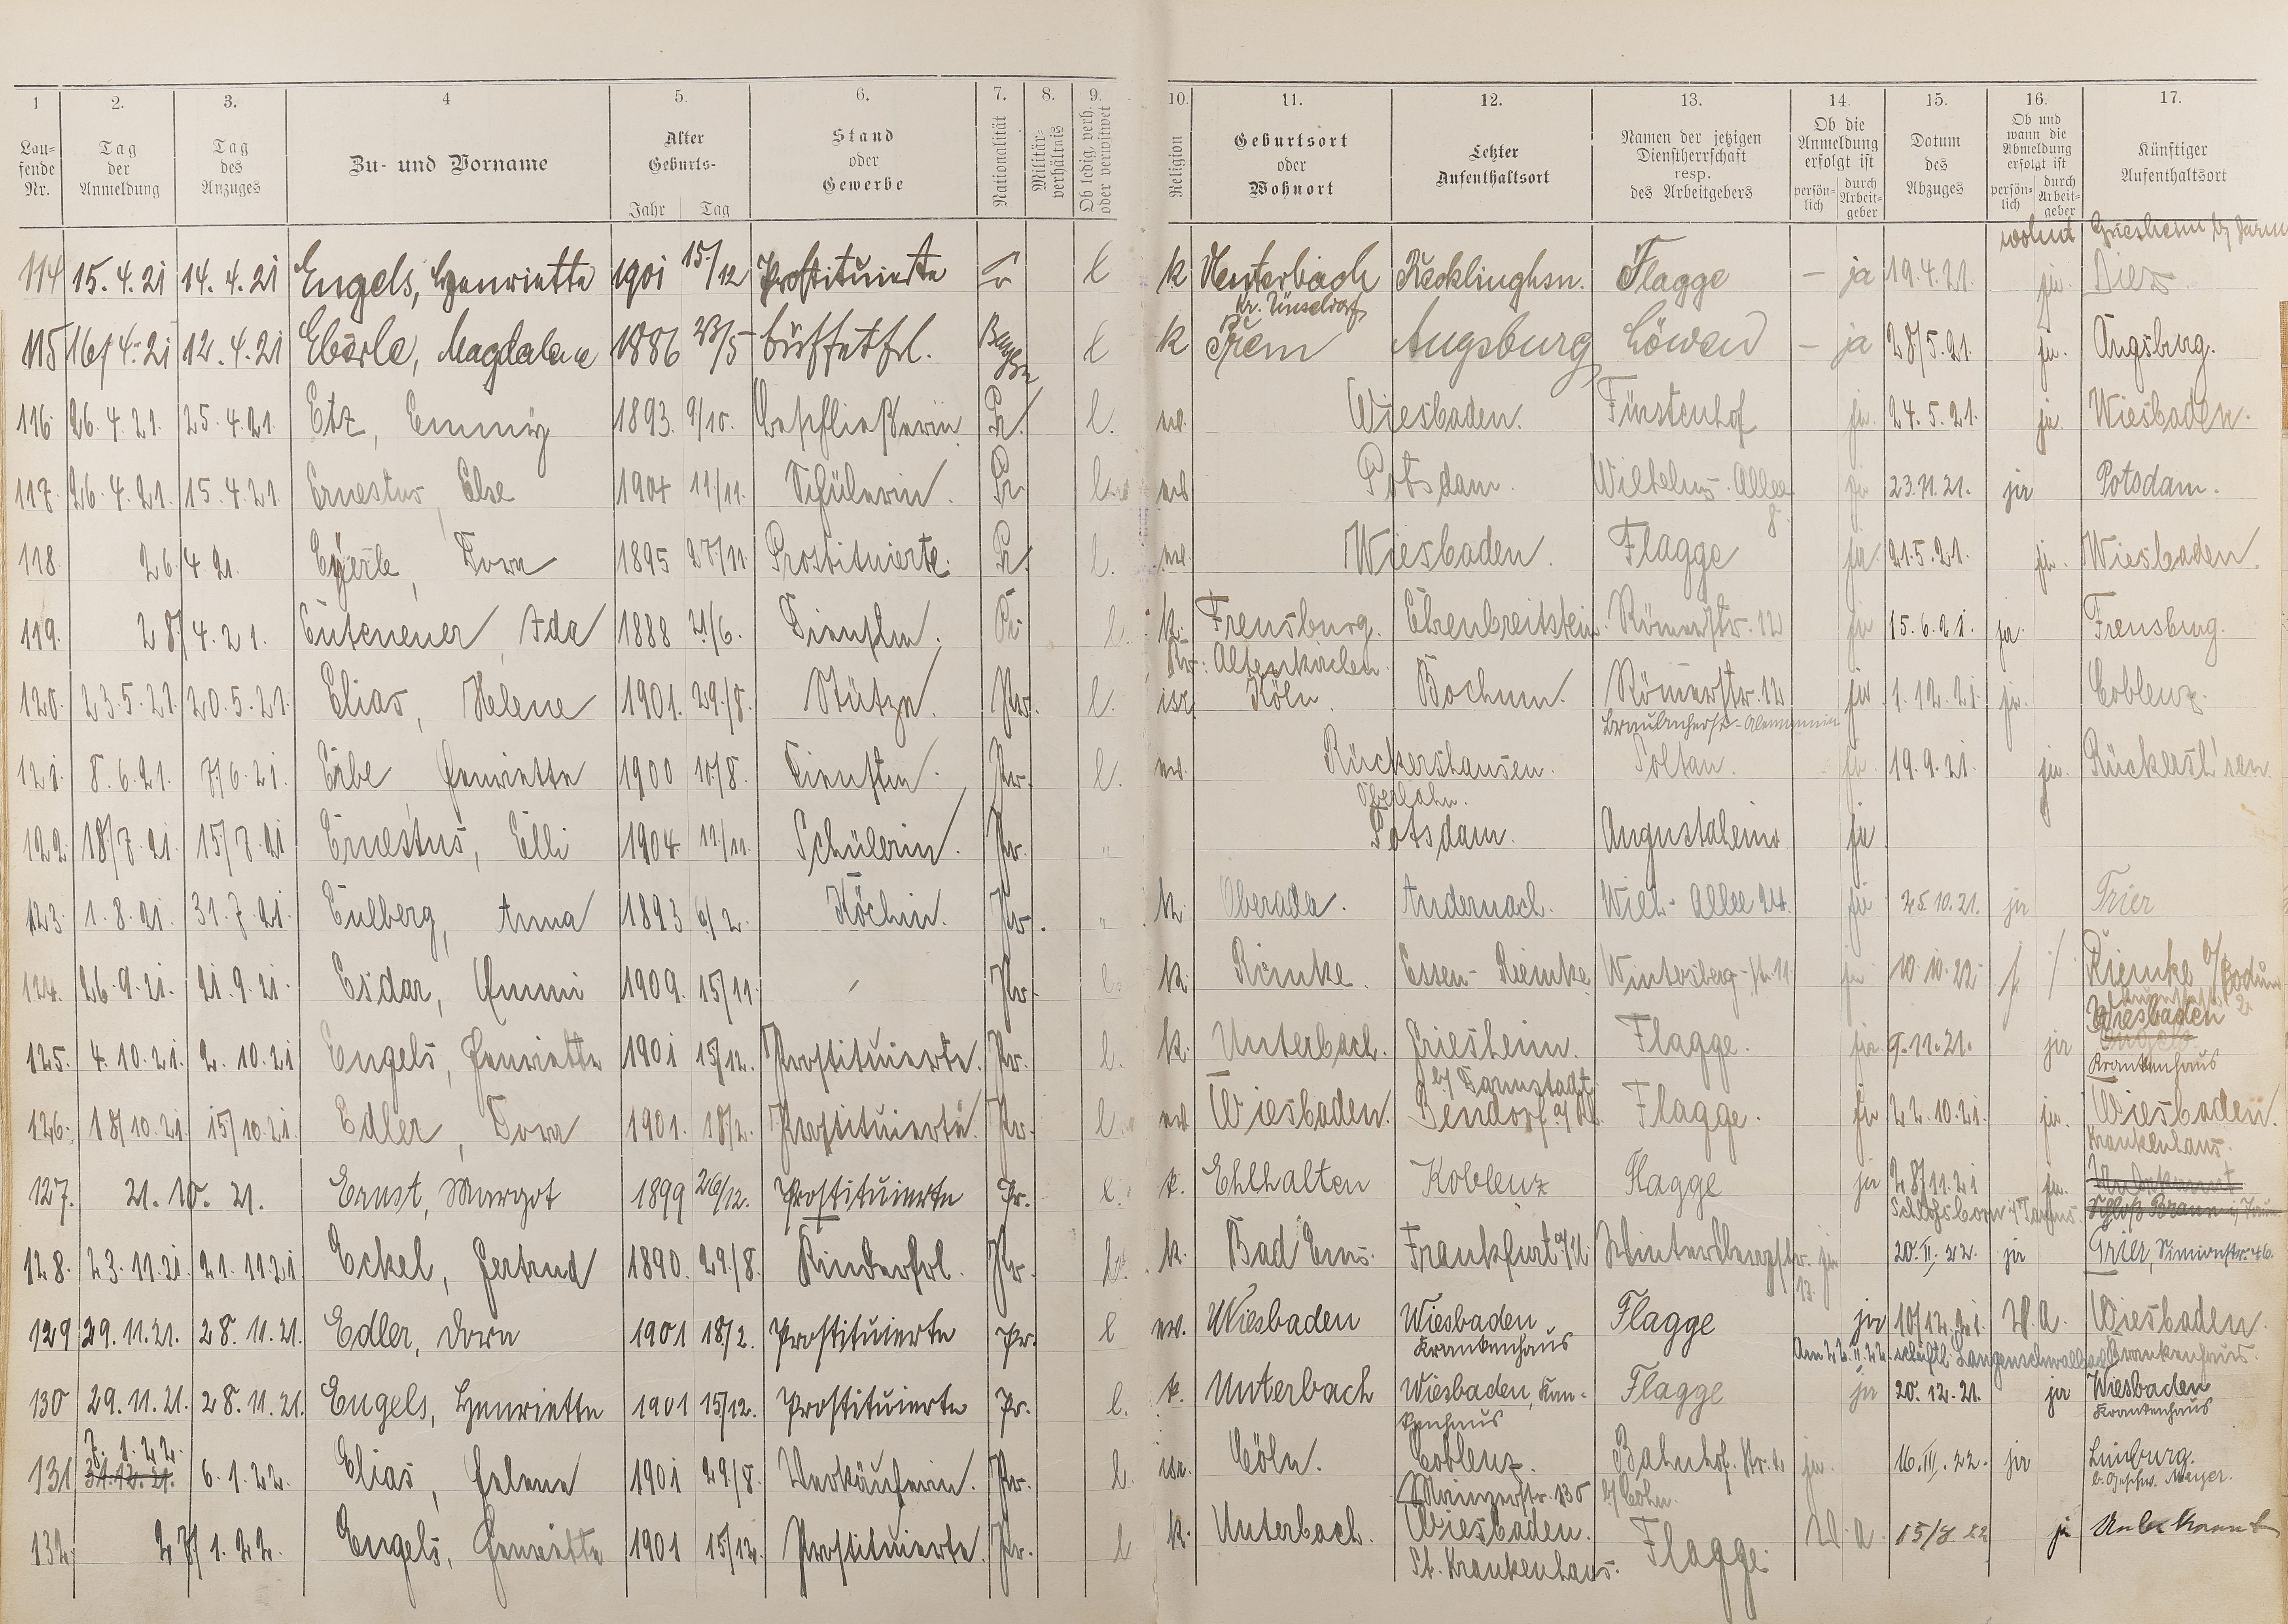 1 2. 3. 4 5. 6. 7. 8. 9. 10. 11. 12. 13. 14. 15. 16. 17.
Laufende Nr. Tag der Anmeldung Tag des Anzuges Zu- und Vorname Alter Geburts- Jahr Tag Stand oder Gewerbe Nationalität Militärverhältnis Ob ledig, verh. oder verwitwet Religion Geburtsort oder Wohnort Letzter Aufenthaltsort Namen der jetzigen Dienstherrschaft resp. des Arbeitgebers Ob die Anmeldung erfolgt ist persönlich durch Arbeitgeber Datum des Abzuges Ob und wann die Abmeldung erfolgt ist persönlich durch Arbeitgeber Künftiger Aufenthaltsort
wohnt Griesheim b/
114 15.4.21 14.4.21 Engels, Henriette 1901 15/12 Prostituierte Pr l k Unterbach Recklinghsn. Flagge – ja 19.4.21. ja. Diez
Kr. Düsseldorf
115 16/4.21 12.4.21 Eberle, Magdalene 1886 23/5 Büffetfrl. l k Prem Augsburg Löwen – ja 28/5.21. ja. Augsburg.
116. 26.4.21. 25.4.21. Etz, Emmy 1893. 9/10. Beschließerin Pr. l. ev. Wiesbaden. Fürstenhof ja. 24.5.21. ja. Wiesbaden.
117. 26.4.21. 15.4.21. Ernestus, Else 1904 11/11. Schülerin. Pr l. ev Potsdam. Wilhelms-Allee 8 ja 23.11.21. ja Potsdam.
118. 26.4.21. Dora 1895 27/11 Prostituierte. Pr. l. ev. Wiesbaden. Flagge ja 21.5.21. ja. Wiesbaden.
119. 28/4.21. Euteneuer, Ida 1888 21/6. Dienstm. Pr. l. k. Freusburg. Ehrenbreitstein. Römerstr. 12 ja 15.6.21. ja. Freusburg.
Kr: Altenkirchen.
120. 23.5.21 20.5.21. Elias, Helene 1901. 29./8. Stütze. Pr. l. isr. Köln. Bochum. Römerstr. 12 ja 1.12.21 ja. Coblenz.
121. 8.6.21. 7/6.21. Erbe, Henriette 1900 10/8. Dienstm. Pr. l. ev. Rückershausen. Soltan. ja. 19.9.21. ja. Rückersh'sen
Oberlahn.
122. 18/7.21 15/7.21 Ernestus, Elli 1904 11/11. Schülerin. Pr. " Potsdam. Augustaheim ja
123. 1.8.21. 31.7.21. Eulberg, Anna 1893 6/2. Köchin. Pr. " k. Oberada. Andernach. Wilh- Allee 24. ja 25.10.21. ja Trier
124. 26.9.21. 21.9.21. Esdar, Emmi 1909. 15/11. Pr. l. k. Riemke. Essen- Riemke Wintersberg-str. 11 ja 10.10.22 Riemke b/ Bochum
Wiesbaden
125. 4.10.21. 2.10.21 Engels, Henriette 1901 15/12. Prostituierte. Pr. l. k. Unterbach. Griesheim. Flagge. ja 9.11.21. ja Krankenhaus
b/ Darmstadt
126. 18/10.21. 15/10.21. Edler, Dora 1901. 18/2. Prostituierte. Pr. l. ev. Wiesbaden. Bendorf a/Rh. Flagge. ja 22.10.21. ja. Wiesbaden.
Krankenhaus.
127. 21.10.21. Ernst, Margot 1899 26/12. Prostituierte Pr. l. k. Ehlhalten Koblenz Flagge ja 28/11.21 ja. Unbekannt
Schloßborn i/Taunus.
128. 23.11.21. 21.11.21 Eckel, Gertrud 1890. 29./8. Kinderfrl. Pr. l. k. Bad Ems. Frankfurt a/M. Wintersbergstr. 13. ja 20.II.22. ja Trier, Simionstr. 46.
129 29.11.21. 28.11.21. Edler, Dora 1901 18/2. Prostituierte Pr. l ev. Wiesbaden Wiesbaden Flagge ja 10/12.21. W.A. Wiesbaden.
Krankenhaus Am 22.II.22. schriftl. Langenschwalbach Krankenhaus.
130 29.11.21. 28.11.21. Engels, Henriette 1901 15/12. Prostituierte Pr. l. k. Unterbach Wiesbaden, Kran- Flagge ja 20.12.21. ja Wiesbaden
kenhaus Krankenhaus
7.1.22.
131 31.12.21. 6.1.22. Elias, Helene 1901 29/8. Verkäuferin. Pr. l. isr. Cöln. Coblenz. Bahnhof-Str. ja. 16.III.22. ja Limburg.
Mainzerstr. 130 b/ Cohn. b. Geschw. Mayer.
132. 27/1.22. Engels, Henriette 1901 15/12. Prostituierte. Pr. l k. Unterbach. Wiesbaden. Flagge. W.A. 15/8.22 ja Unbekannt
St. Krankenhaus.